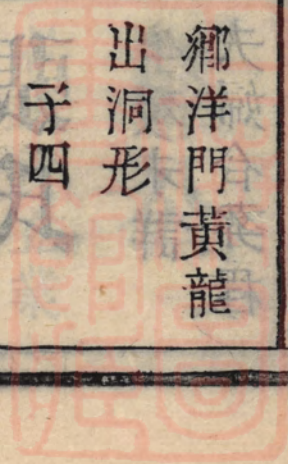 鄉洋門黃龍
出洞形
子四